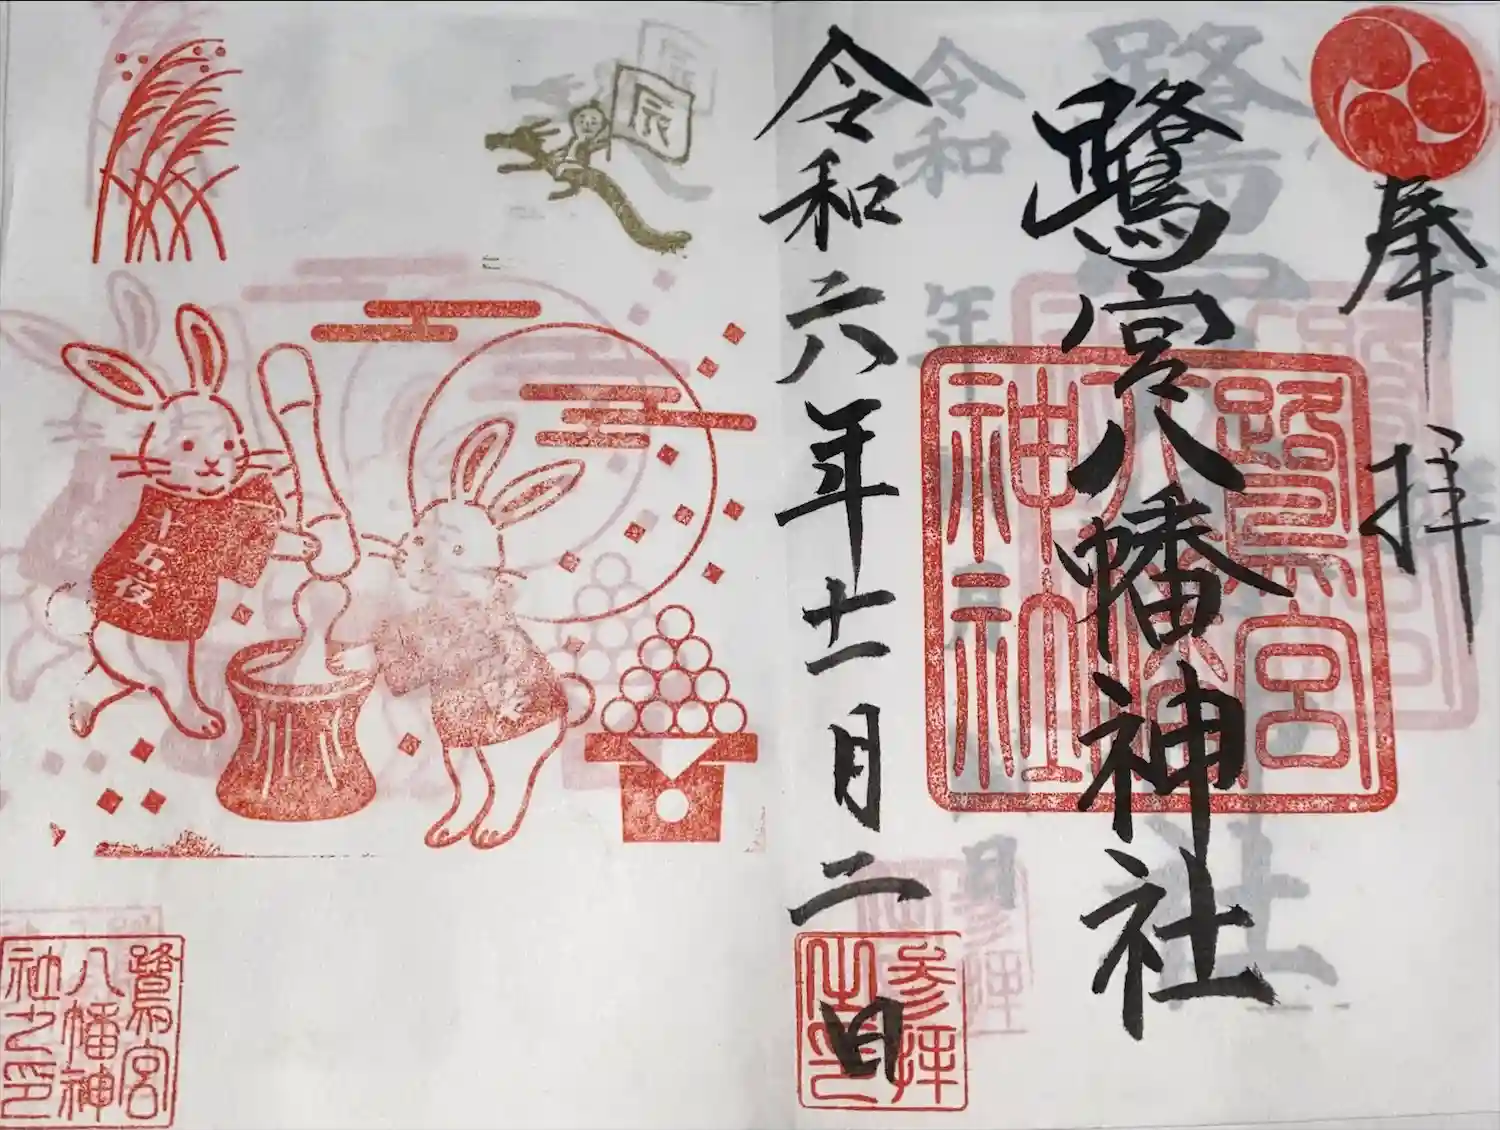 奉拝
鷺宮八幡神社
鷺宮
八幡
神社
令和六年十一月二日
参拝
之印
辰
十五夜
鷺宮
八幡神
社之印